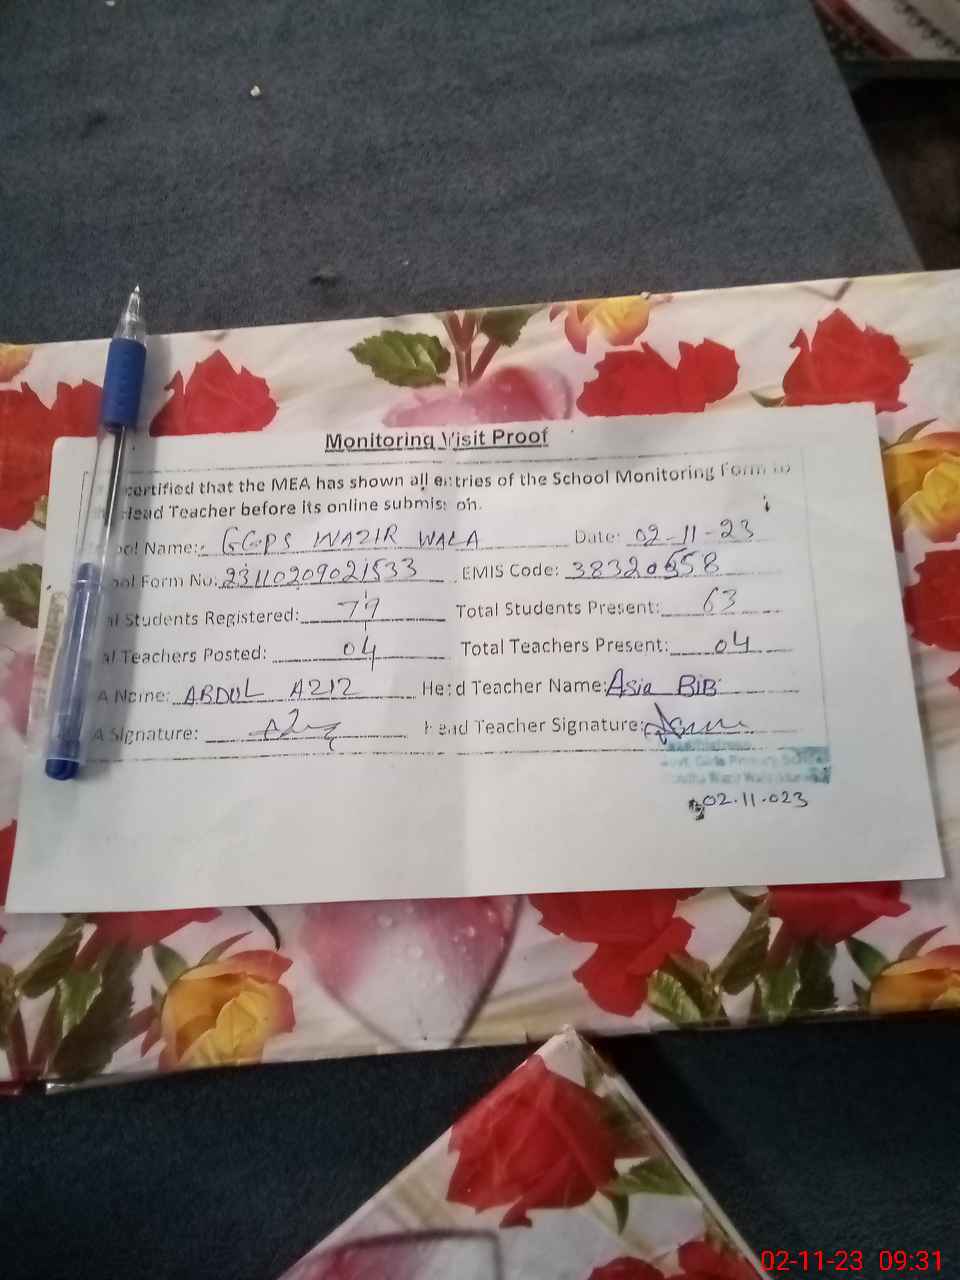 Monitoring Visit Proof
certified that the MEA has shown all entries of the School Monitoring Form to
Head Teacher before its online submission.
ool Name: GGPS WAZIR WALA Date: 02-11-23
ool Form No: 23110209021533 EMIS Code: 38320658
al Students Registered: 77 Total Students Present: 63
al Teachers Posted: 04 Total Teachers Present: 04
A Name: ABDUL AZIZ Head Teacher Name: Asia BiBi
A Signature: Head Teacher Signature:
Govt. Girls Primary School
02.11.023
02-11-23 09:31